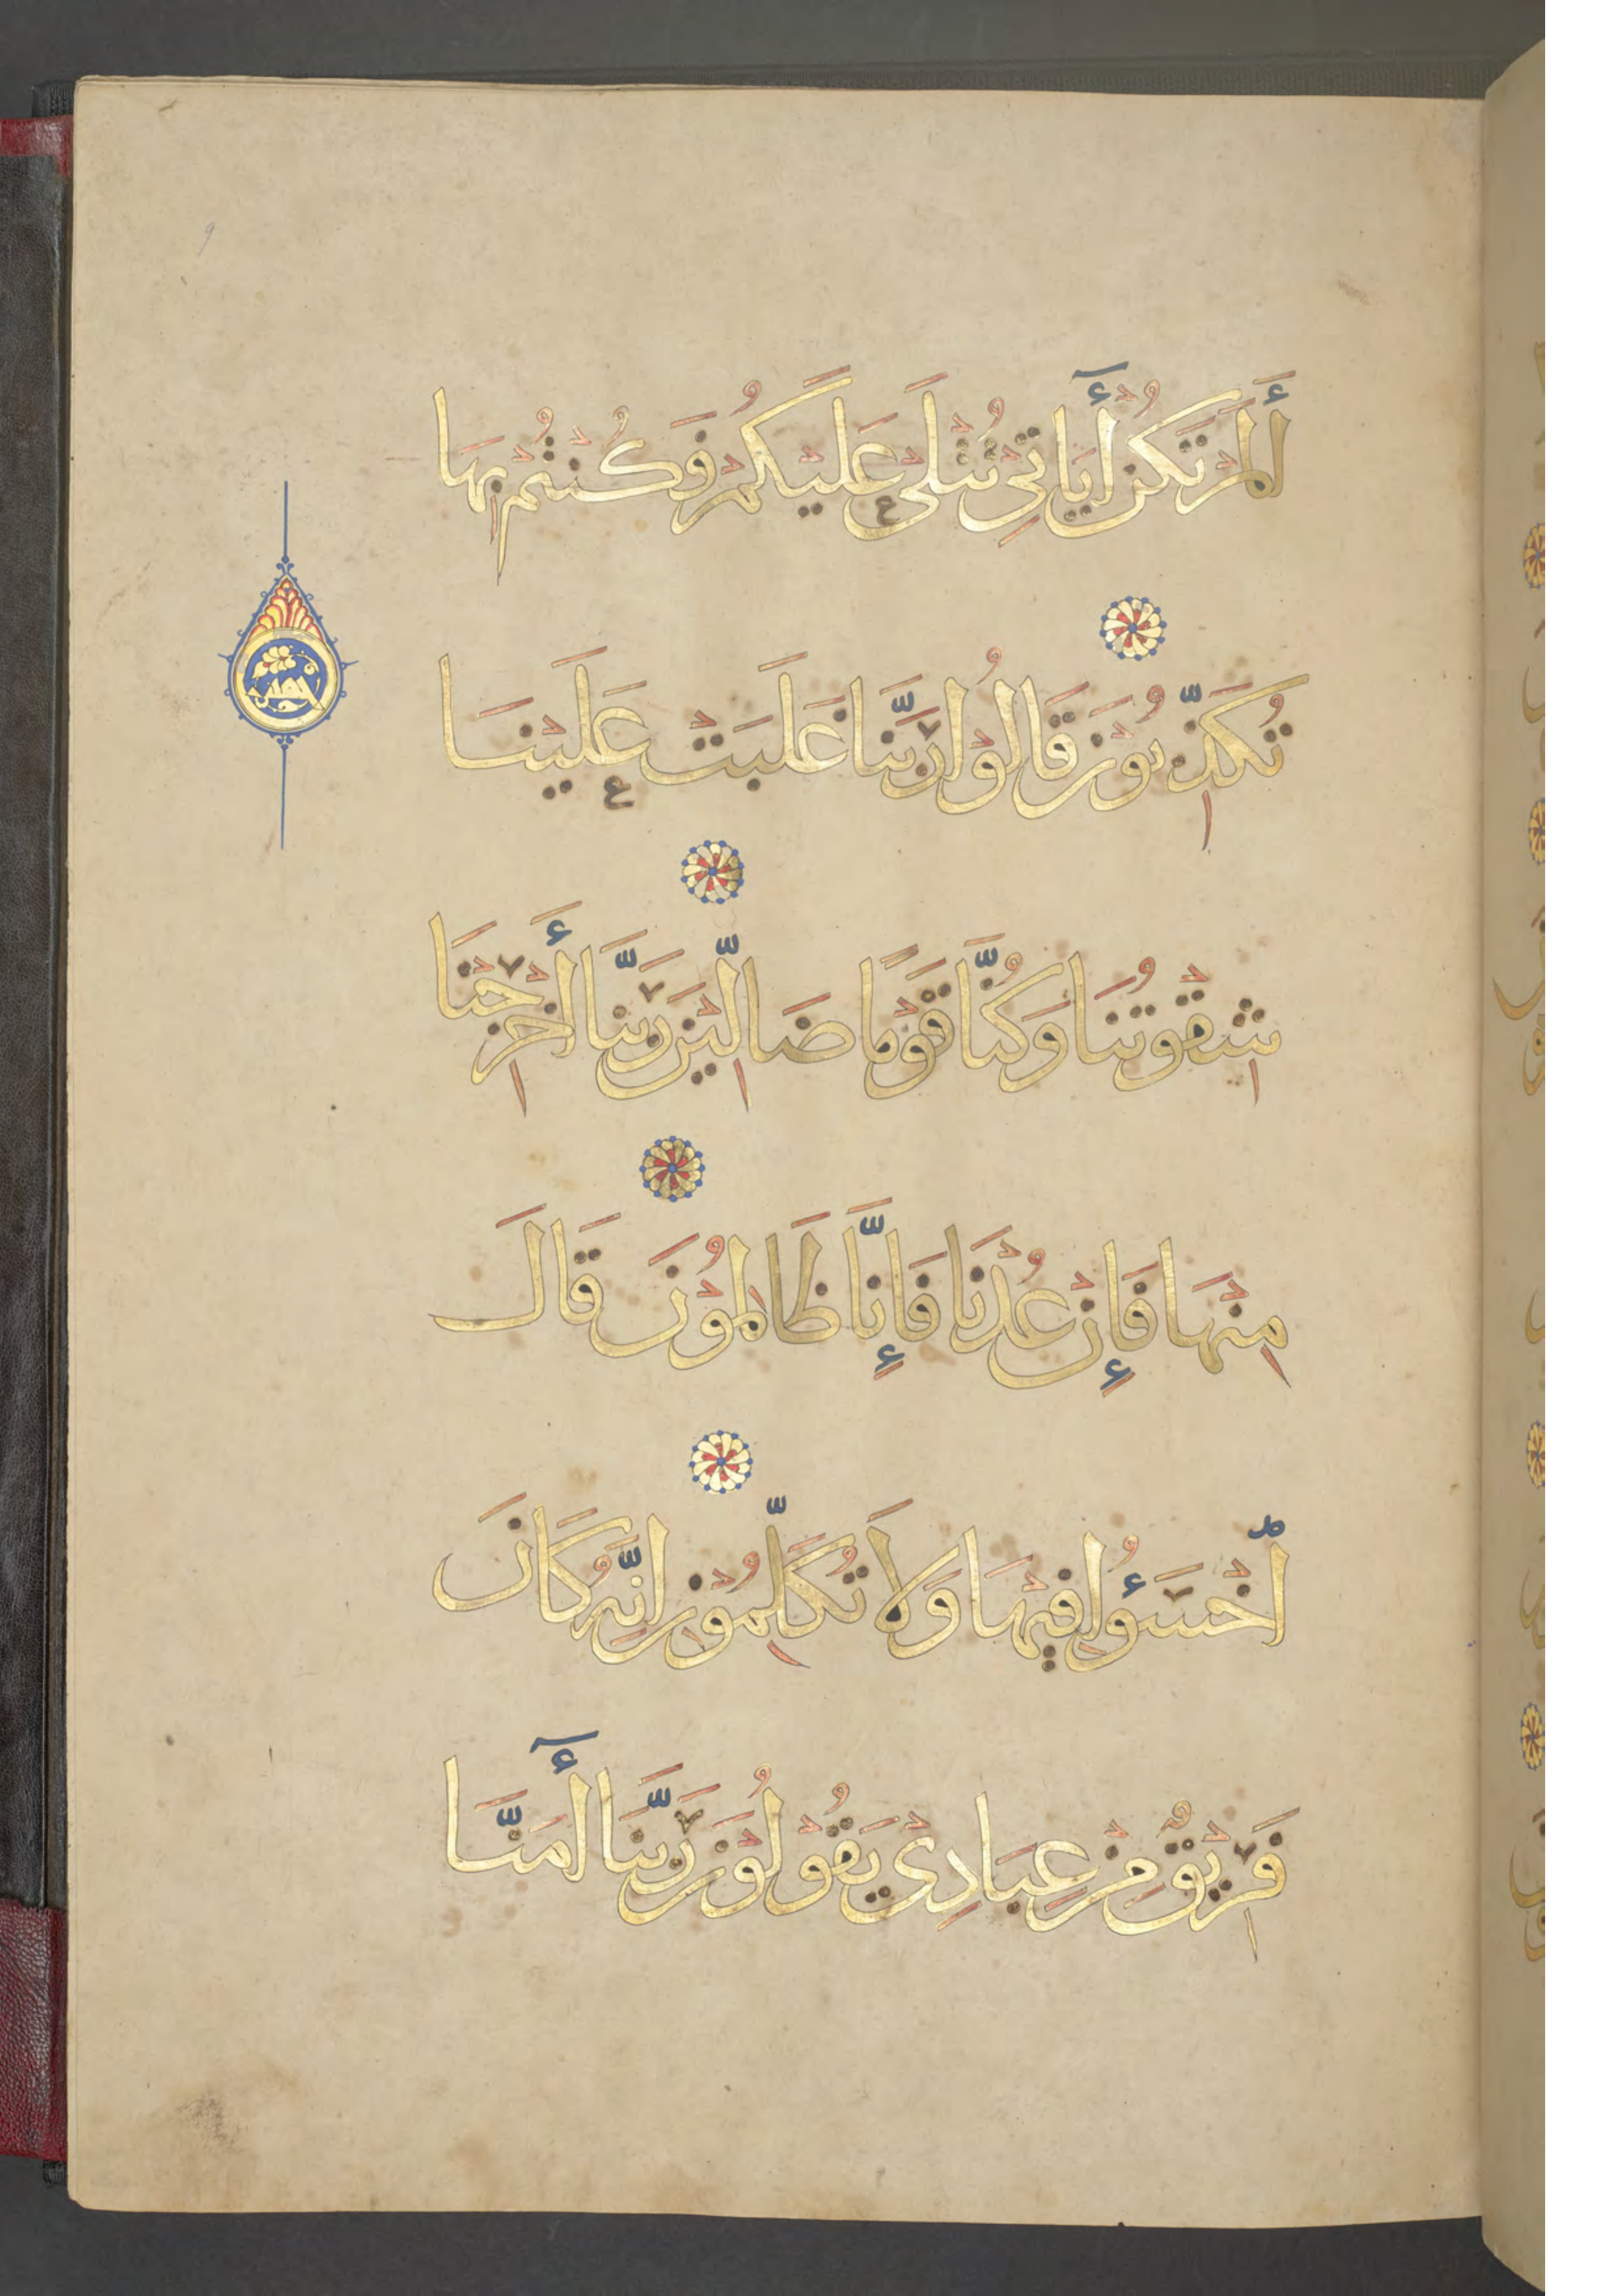 أَلَمْ تَكُنْ أٰيَاتِي تُتْلَى عَلَيْكُمْ فَكُنْتُمْ بِهَا
تُكَذِّبُوْنَ قَالُوْا رَبَّنَا غَلَبَتْ عَلَيْنَا
شِقْوَتُنَا وَكُنَّا قَوْمًا ضَالِّيْنَ رَبَّنَا أَخْرِجْنَا
مِنْهَا فَإِنْ عُدْنَا فَإِنَّا ظَالِمُوْنَ قَالَ
ٱخْسَؤُا فِيْهَا وَلَا تُكَلِّمُوْنِ اِنَّهُ كَانَ
فَرِيْقٌ مِنْ عِبَادِيْ يَقُوْلُوْنَ رَبَّنَا أٰمَنَّا